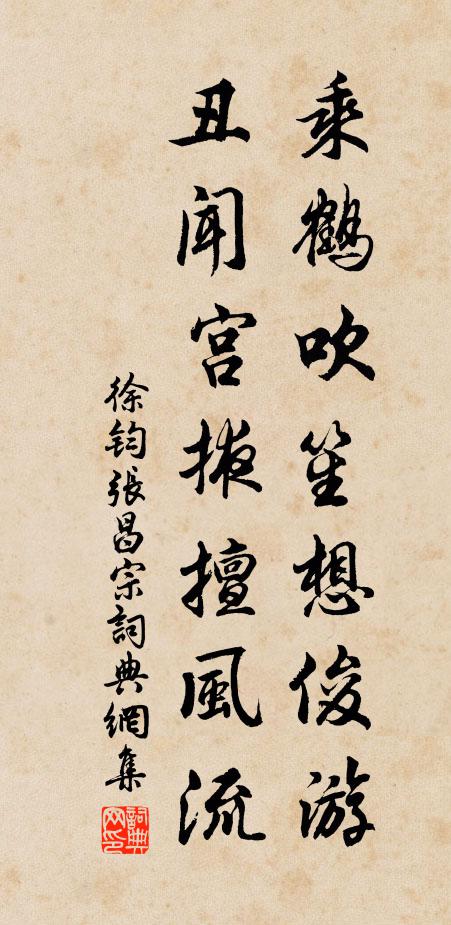 乘鶴吹笙想俊游
丑闻宫掖擅風流
徐鈞張昌宗詞典網集
詞典网印